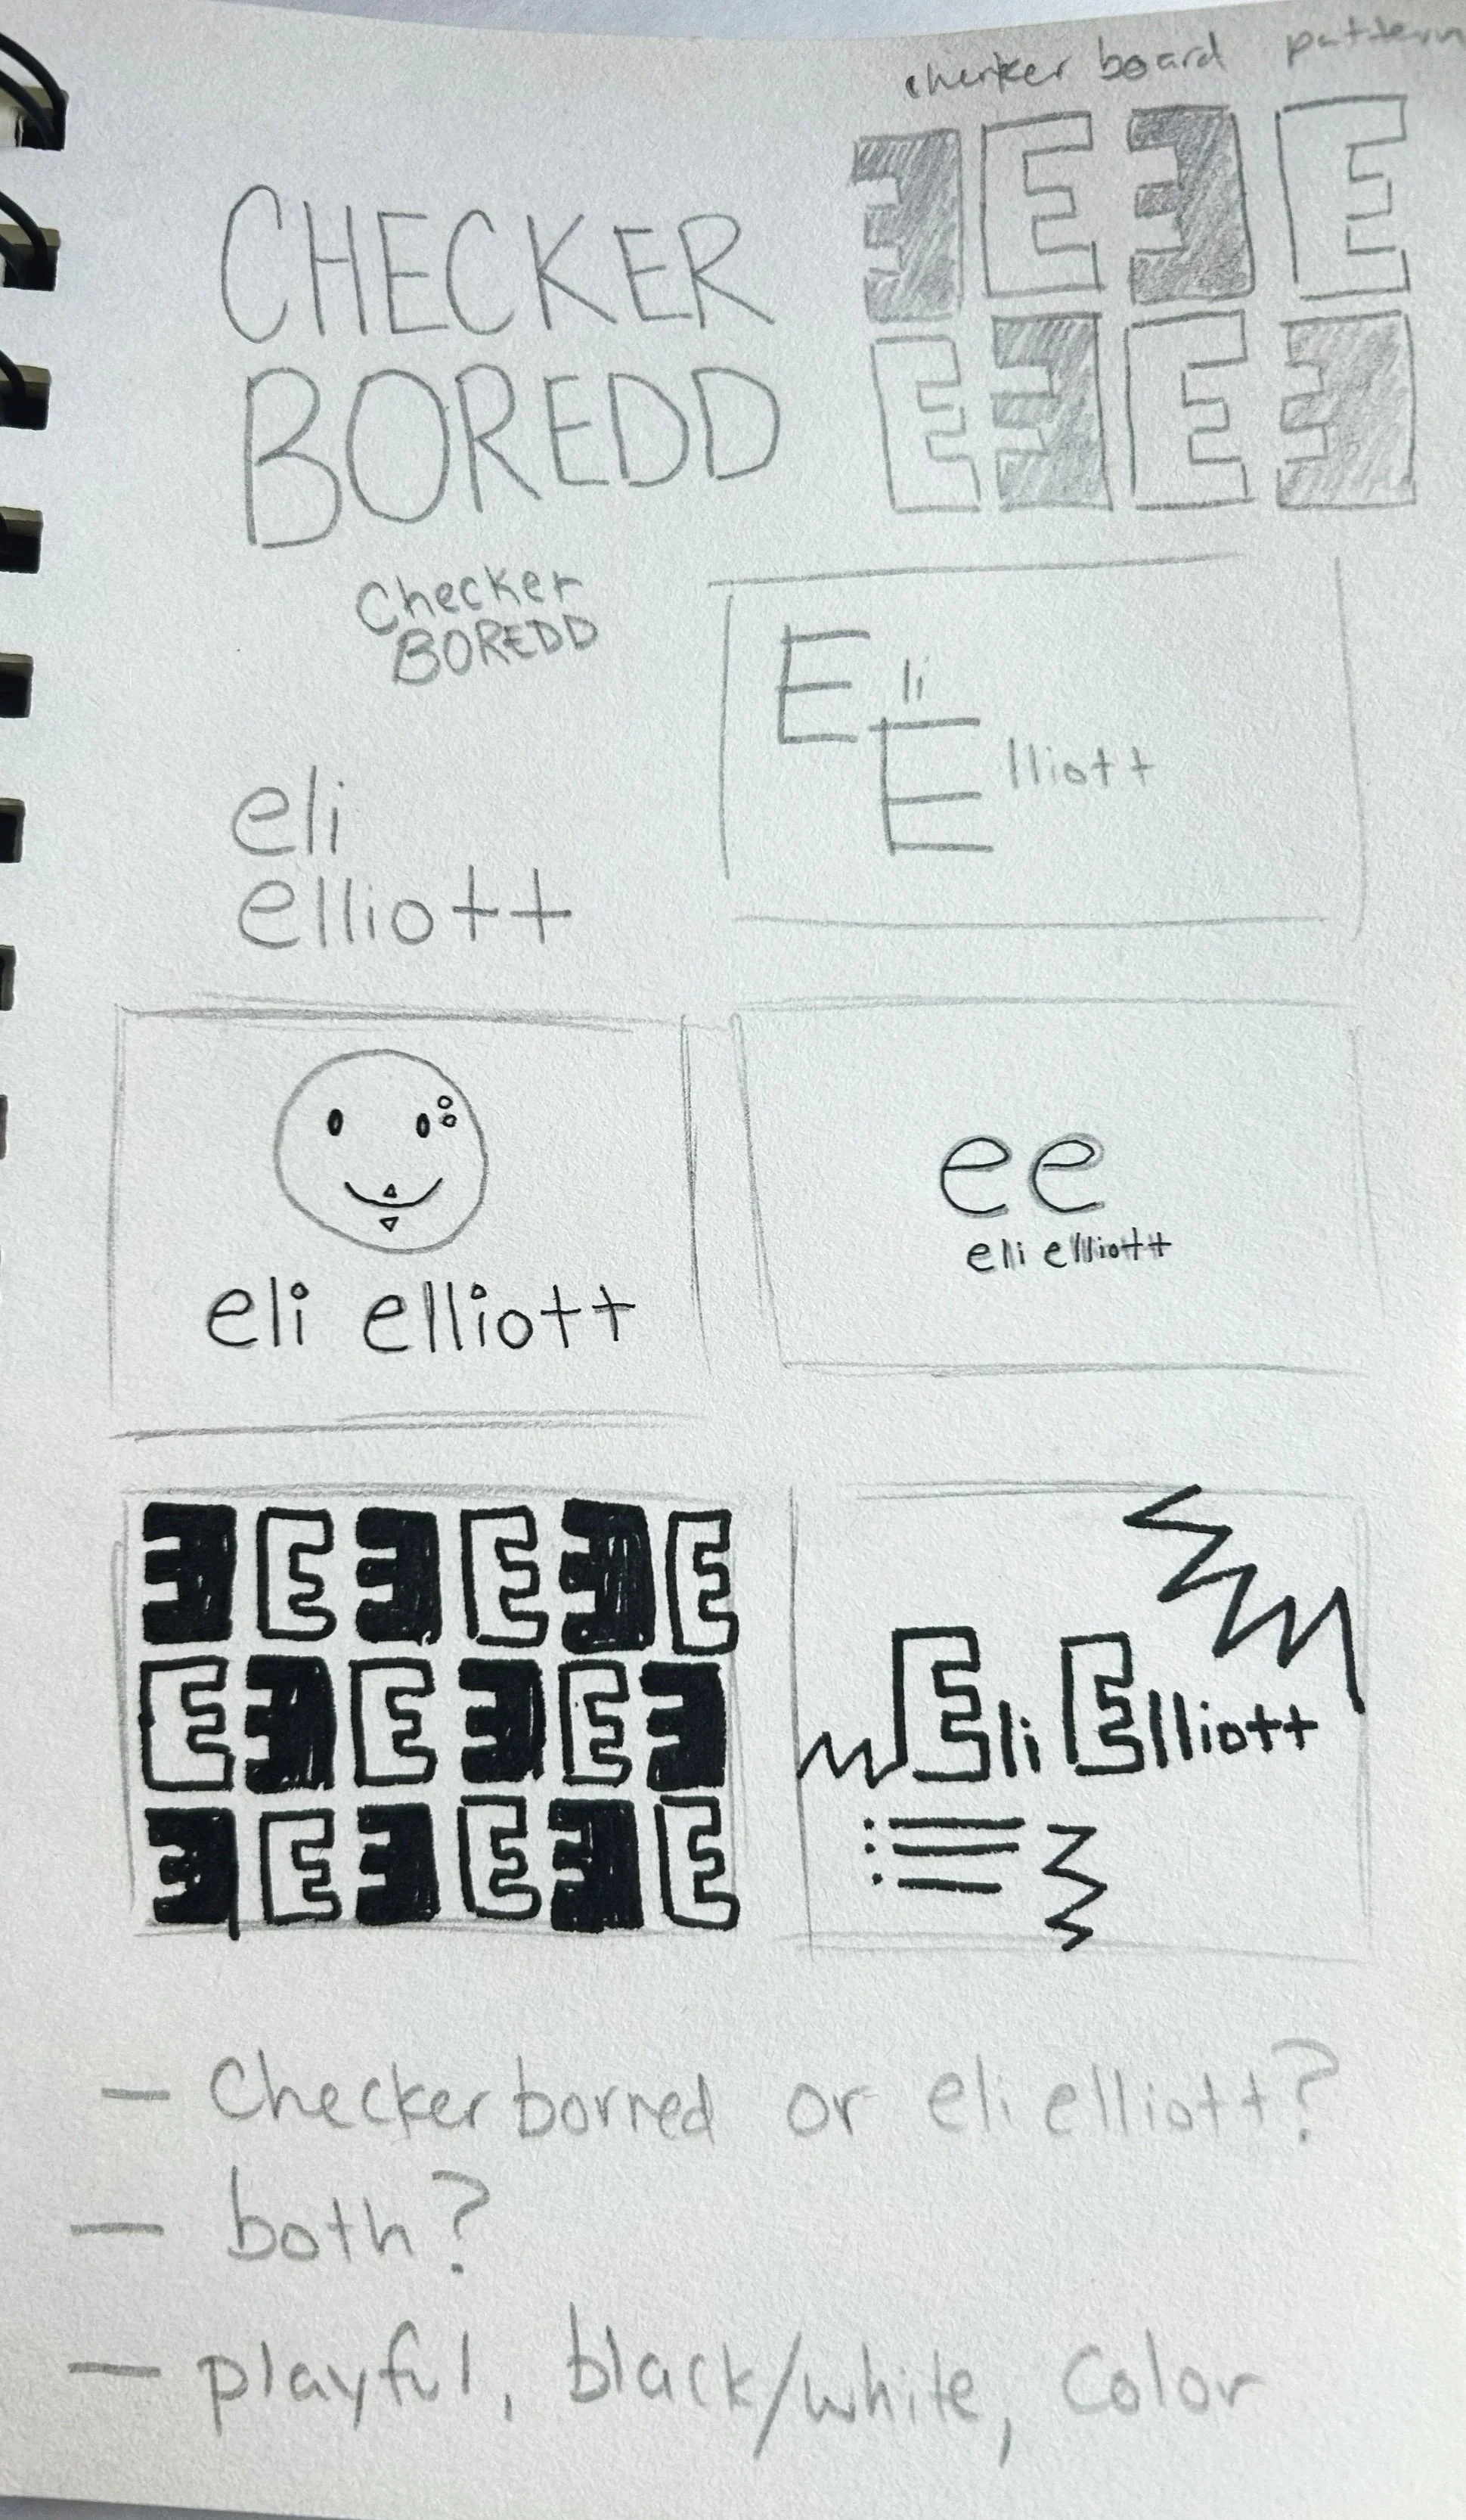 checker board pattern
CHECKER
BOREDD
E E E E
E E E E
Checker
BOREDD
Eli
Elliott
eli
elliott
eli elliott
ee
eli elliott
E E E E E E
E E E E E E
E E E E E E
Eli Elliott
– Checker borred or eli elliott?
– both?
– playful, black/white, color